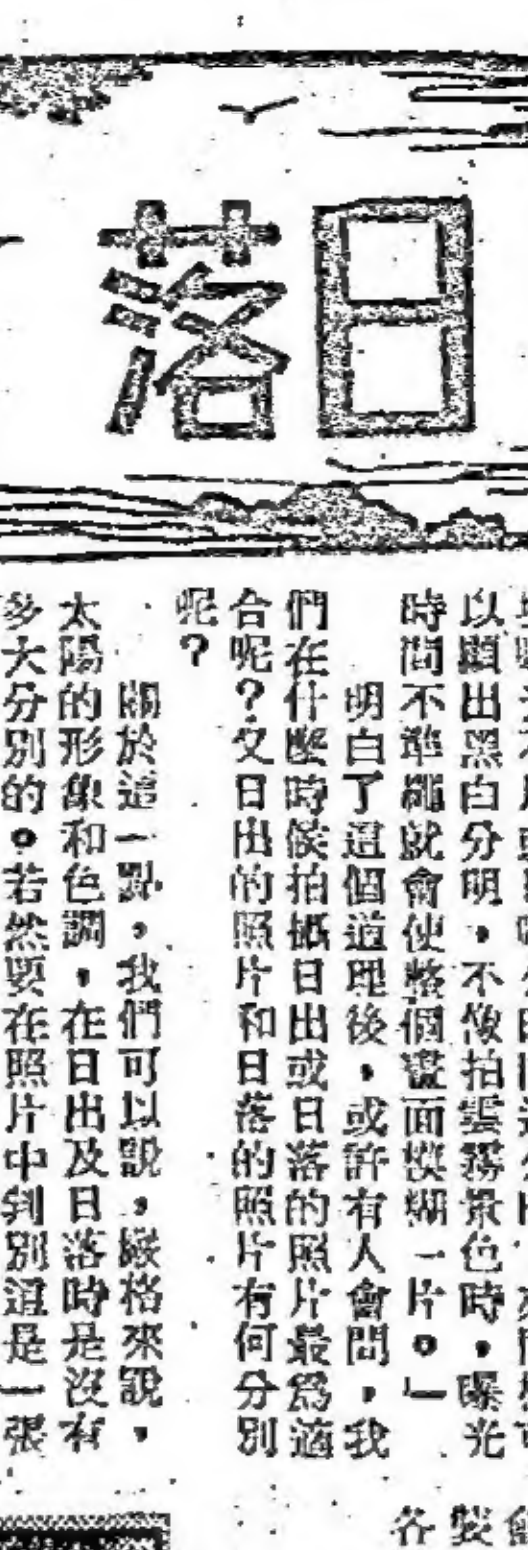 日落
以顯出黑白分明,不像拍雲霧景色時,曝光
時間不準確就會使整個畫面模糊一片。」
明白了這個道理後,或許有人會問,我
們在什麼時候拍攝日出或日落的照片最爲適
合呢?又日出的照片和日落的照片有何分別
呢?
關於這一點,我們可以說,嚴格來說,
太陽的形象和色調,在日出及日落時是沒有
多大分別的。若然要在照片中判別這是一張